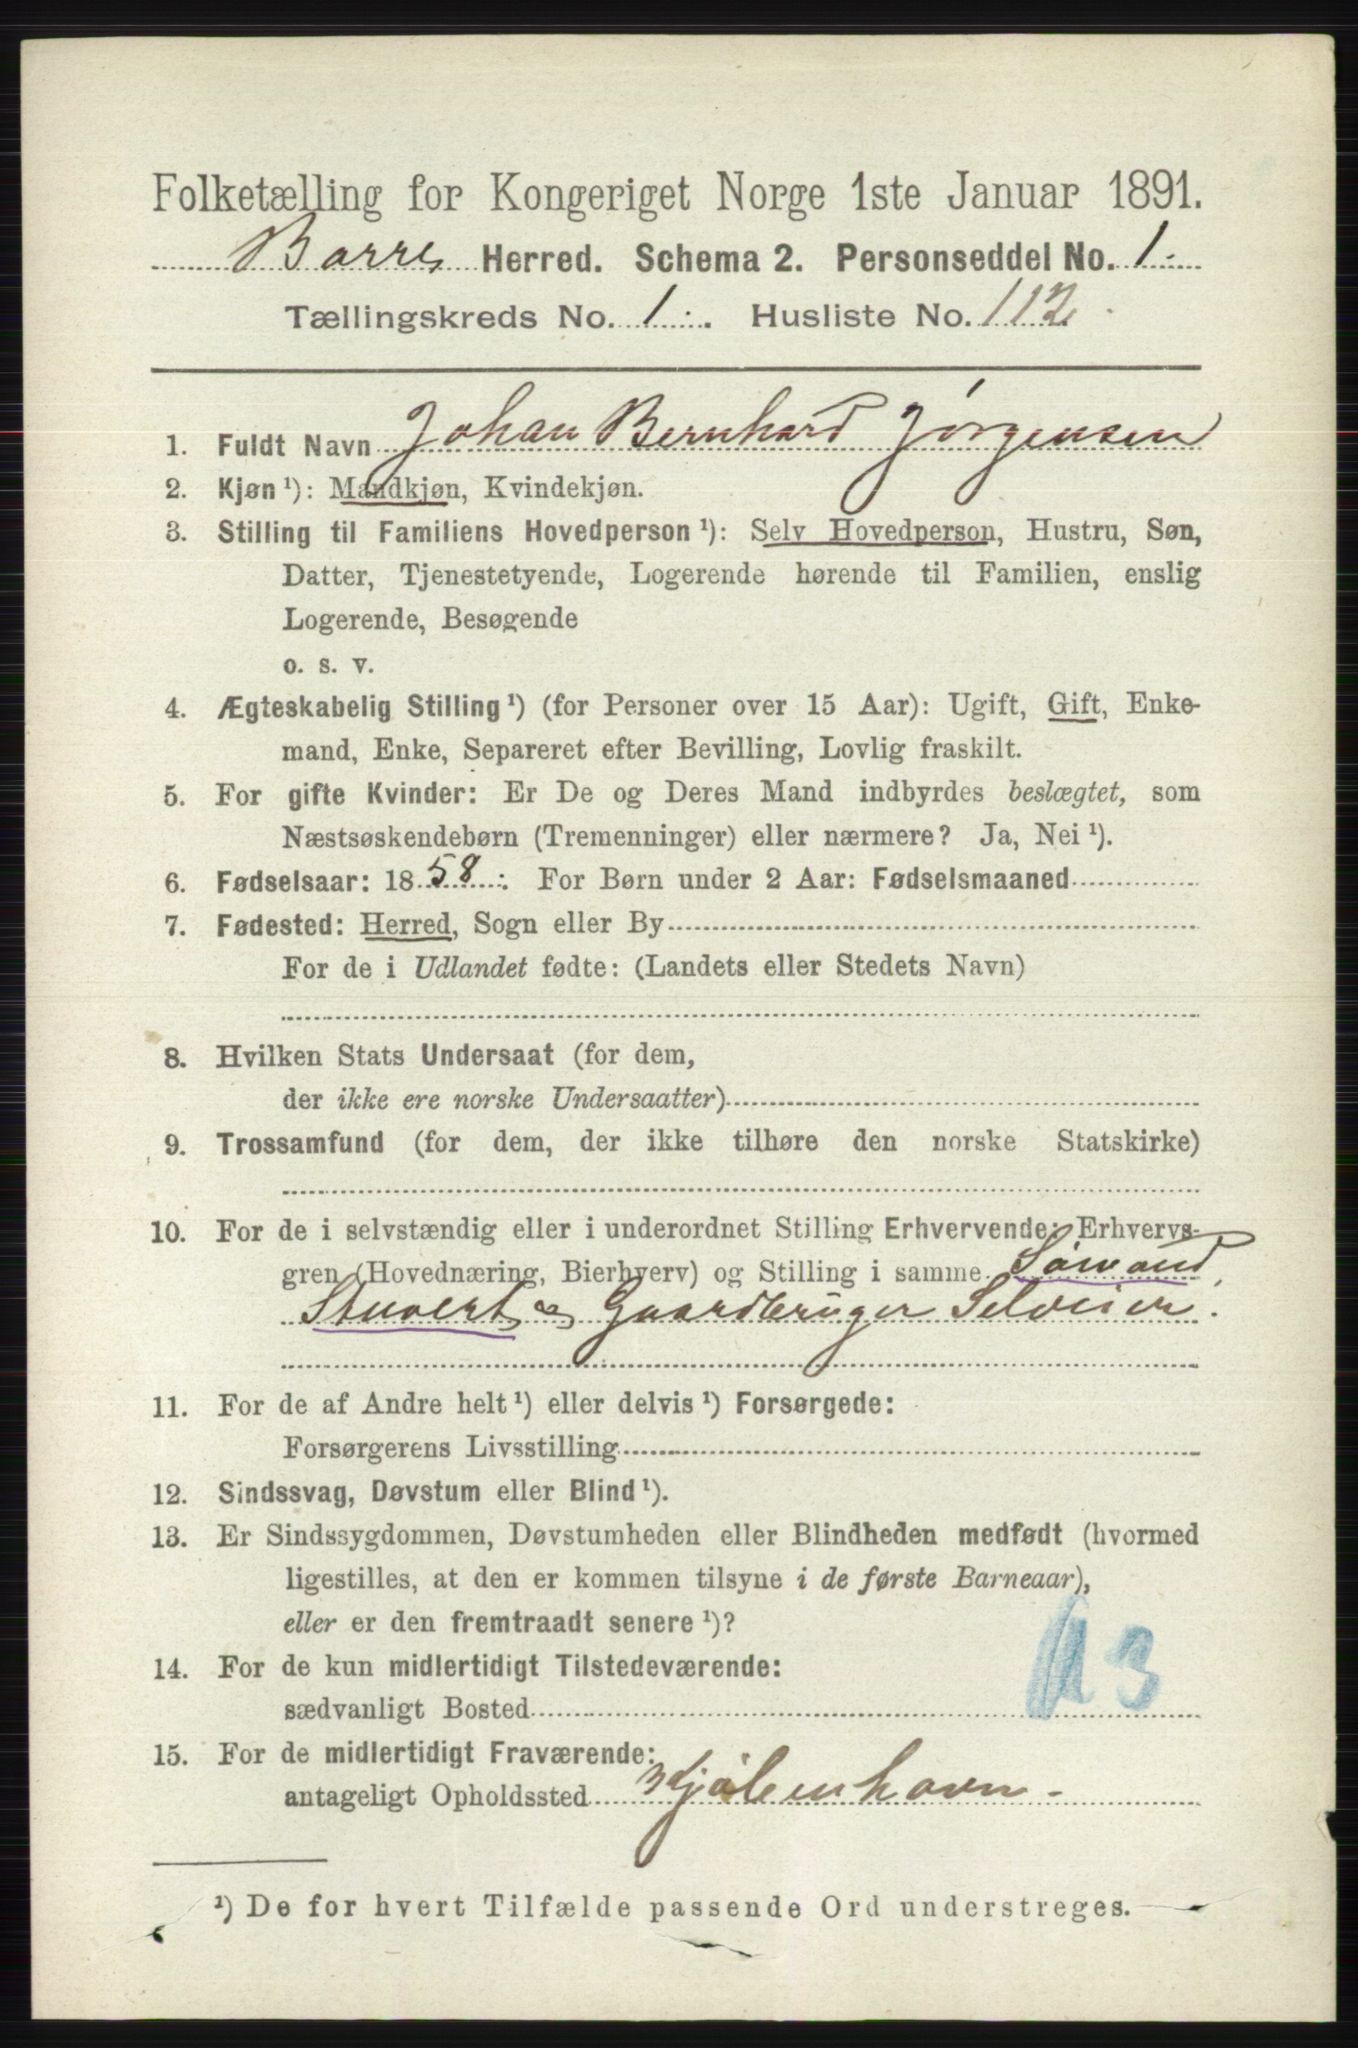 Folketælling for Kongeriget Norge 1ste Januar 1891.
Borre Herred. Schema 2. Personseddel No. 1.
Tællingskreds No. 1. Husliste No. 112.
1. Fuldt Navn Johan Bernhard Jørgensen
2. Kjøn ¹): Mandkjøn, Kvindekjøn.
3. Stilling til Familiens Hovedperson ¹): Selv Hovedperson, Hustru, Søn,
Datter, Tjenestetyende, Logerende hørende til Familien, enslig
Logerende, Besøgende
o. s. v.
4. Ægteskabelig Stilling ¹) (for Personer over 15 Aar): Ugift, Gift, Enke-
mand, Enke, Separeret efter Bevilling, Lovlig fraskilt.
5. For gifte Kvinder: Er De og Deres Mand indbyrdes beslægtet, som
Næstsøskendebørn (Tremenninger) eller nærmere? Ja, Nei ¹).
6. Fødselsaar: 1858. For Børn under 2 Aar: Fødselsmaaned
7. Fødested: Herred, Sogn eller By
For de i Udlandet fødte: (Landets eller Stedets Navn)
8. Hvilken Stats Undersaat (for dem,
der ikke ere norske Undersaatter)
9. Trossamfund (for dem, der ikke tilhøre den norske Statskirke)
10. For de i selvstændig eller i underordnet Stilling Erhvervende: Erhvervs-
gren (Hovednæring, Bierhverv) og Stilling i samme Sømand,
Stuvert og Gaardbruger Selveier.
11. For de af Andre helt ¹) eller delvis ¹) Forsørgede:
Forsørgerens Livsstilling
12. Sindssvag, Døvstum eller Blind ¹).
13. Er Sindssygdommen, Døvstumheden eller Blindheden medfødt (hvormed
ligestilles, at den er kommen tilsyne i de første Barneaar),
eller er den fremtraadt senere ¹)?
14. For de kun midlertidigt Tilstedeværende:
sædvanligt Bosted
15. For de midlertidigt Fraværende:
antageligt Opholdssted Kjøbenhavn
¹) De for hvert Tilfælde passende Ord understreges.